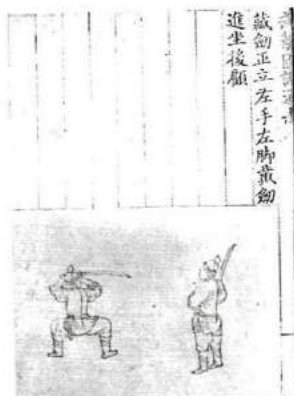 武藝圖譜通志
藏劍正立左手左脚戴劍
進坐後顧